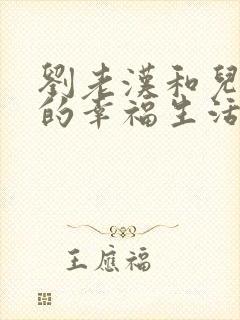 劉老漢和兒
的幸福生活
王應福